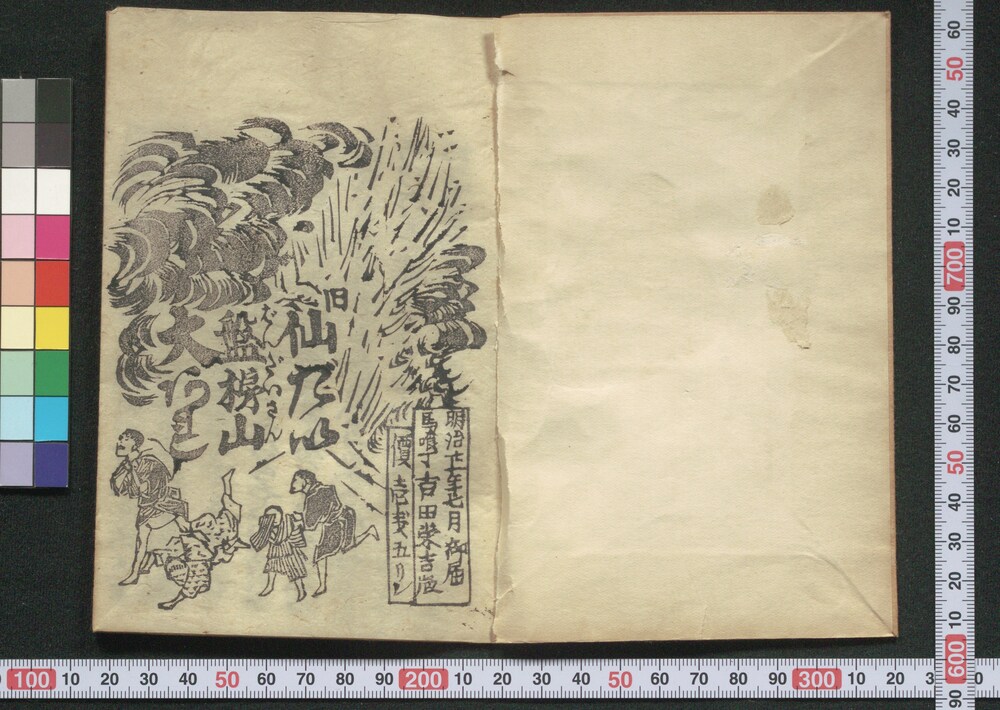 明治廿一年七月御届
馬喰丁 吉田榮吉版
價壱銭五リン
旧
仙乃以
盤梯山
ばんだいさん
大
60 50 40 30 20 10 700 90 80 70 60 50 40 30 20 10 600 90
100 10 20 30 40 50 60 70 80 90 200 10 20 30 40 50 60 70 80 90 300 10 20